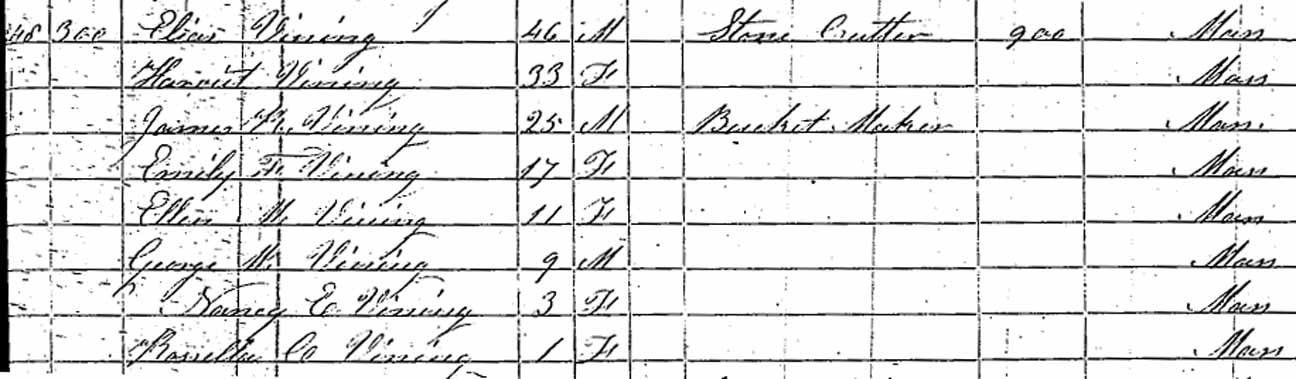 48 300 Elias Vining 46 M Stone Cutter 900 Mass
Harriet Vining 33 F Mass
James R. Vining 25 M Bucket Maker Mass.
Emily F. Vining 17 F Mass
Ellen M. Vining 11 F Mass
George W. Vining 9 M Mass
Nancy E Vining 3 F Mass
Rosella C Vining 1 F Mass